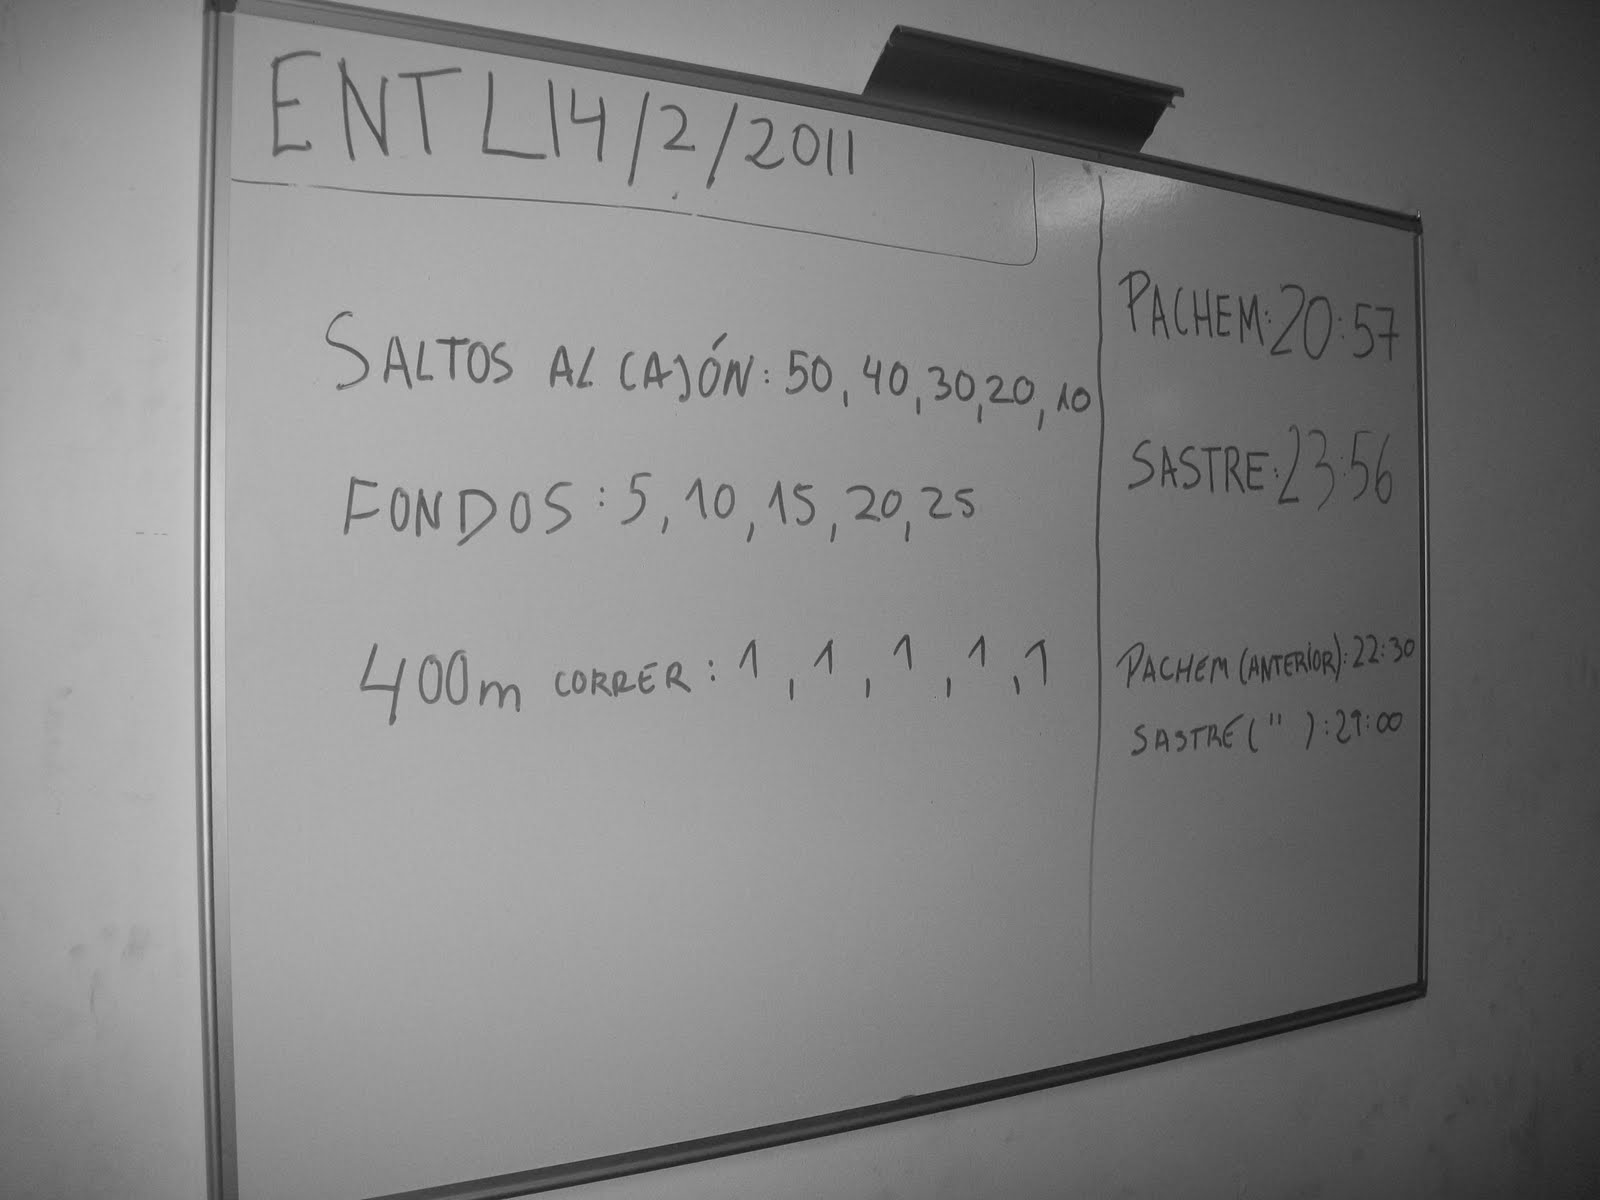 ENT L14/2/2011
SALTOS AL CAJÓN: 50, 40, 30, 20, 10
FONDOS: 5, 10, 15, 20, 25
400m CORRER: 1, 1, 1, 1, 1
PACHEM: 20:57
SASTRE: 23:56
PACHEM (ANTERIOR): 22:30
SASTRE ( " ): 29:00